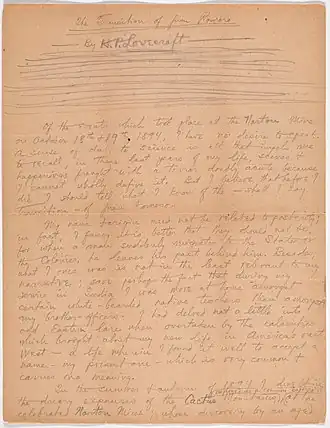 The Transition of Juan Romero
— By H.P. Lovecraft
Of the events which took place at the Norton Mine
on October 18th & 19th, 1894, I have no desire to speak.
A sense of duty to science is all that impels me
to recall, in these last years of my life, scenes &
happenings fraught with a terror doubly acute because
I cannot wholly define it. But I believe that before I
die I should tell what I know of the — shall I say
transition — of Juan Romero.
My name & origin need not be related to posterity;
in fact, I fancy it is better that they should not be,
for when a man suddenly migrates to the States or
the Colonies, he leaves his past behind him. Besides,
what I once was is not in the least relevant to my
narrative; save perhaps the fact that during my
service in India I was more at home amongst
native teachers than amongst
my brother-officers. I had delved not a little into
odd Eastern lore when overtaken by the calamities
which brought about my new life in America's vast
West — a life wherein I found it well to accept a
name — my present one — which is very common &
carries no meaning.
In the summer & autumn of 1894 I dwelt in
the dreary expanses of the Cactus Mountains, at the
celebrated Norton Mine, whose discovery by an aged